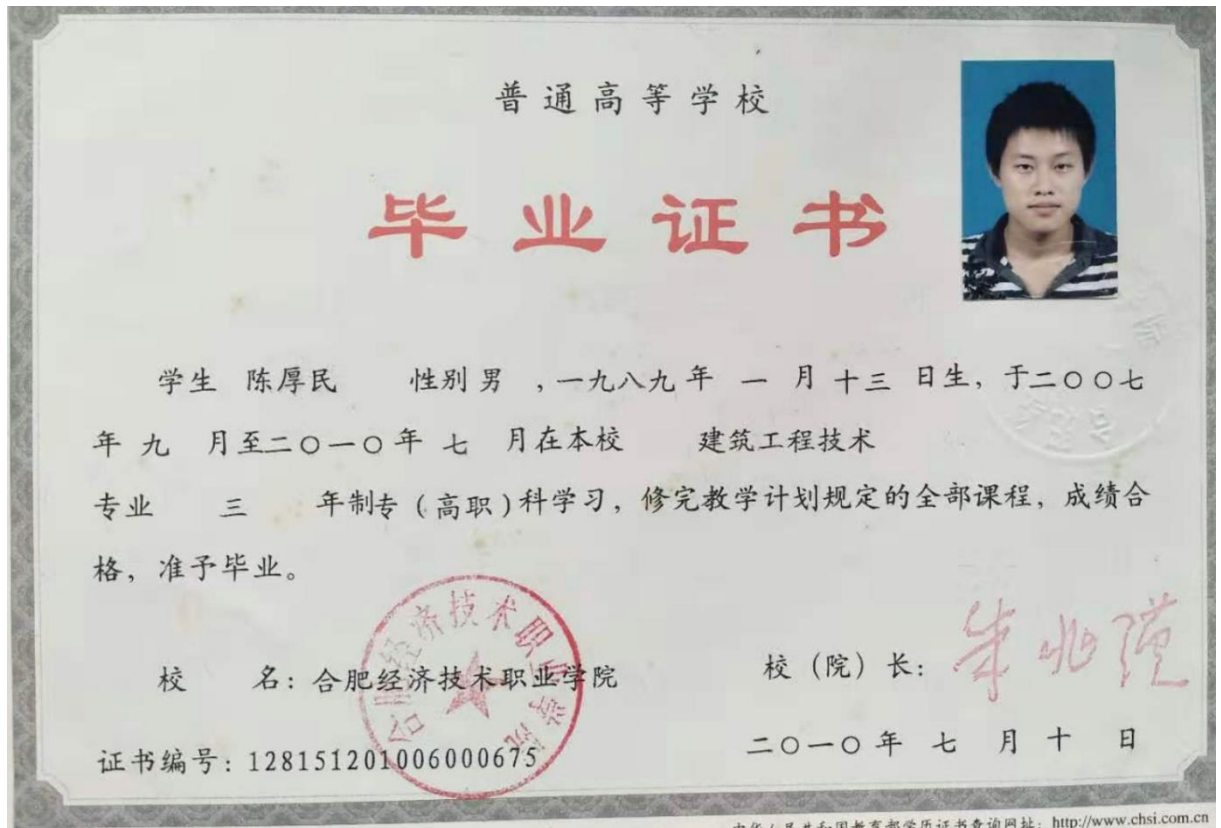 普通高等学校
毕业证书
学生 陈厚民 性别 男 ，一九八九 年 一 月 十三 日生，于二〇〇七
年 九 月至二〇一〇 年 七 月在本校 建筑工程技术
专业 三 年制专（高职）科学习，修完教学计划规定的全部课程，成绩合
格，准予毕业。
合肥经济技术职业学院
校 名：合肥经济技术职业学院
校（院）长：
证书编号：128151201006000675
二〇一〇 年 七 月 十 日
中华人民共和国教育部学历证书查询网址：http://www.chsi.com.cn